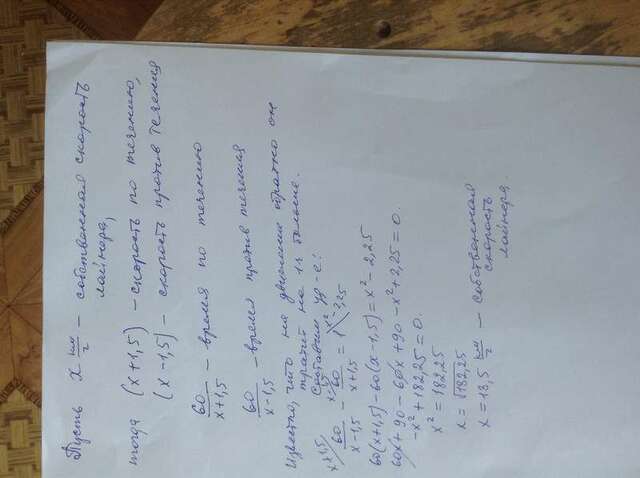 Пусть x км/г — собственная скорость
лайнера,
тогда (x+1,5) — скорость по течению,
(x-1,5) — скорость против течения
60/(x+1,5) — время по течению
60/(x-1,5) — время против течения
Известно, что на движение обратно он
тратит на 1ч больше.
Составим ур-е:
x+1,5 x-1,5 x²-2,25
60/(x-1,5) - 60/(x+1,5) = 1
60(x+1,5)-60(x-1,5)=x²-2,25
60x+90-60x+90-x²+2,25=0.
-x²+182,25=0.
x²=182,25
x=√182,25
x=13,5 км/г — собственная
скорость
лайнера.